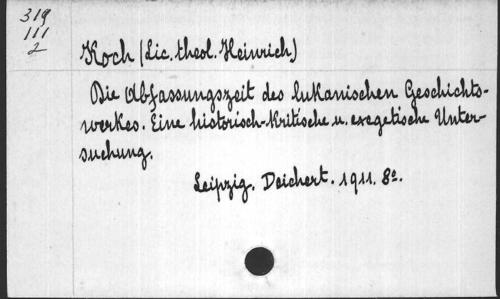 319
111
2
Koch (Lic. theol. Heinrich)
Die Abfassungszeit des lukanischen Geschichts-
werkes. Eine historisch-kritische u. exegetische Unter-
suchung.
Leipzig. Deichert. 1911. 8o.